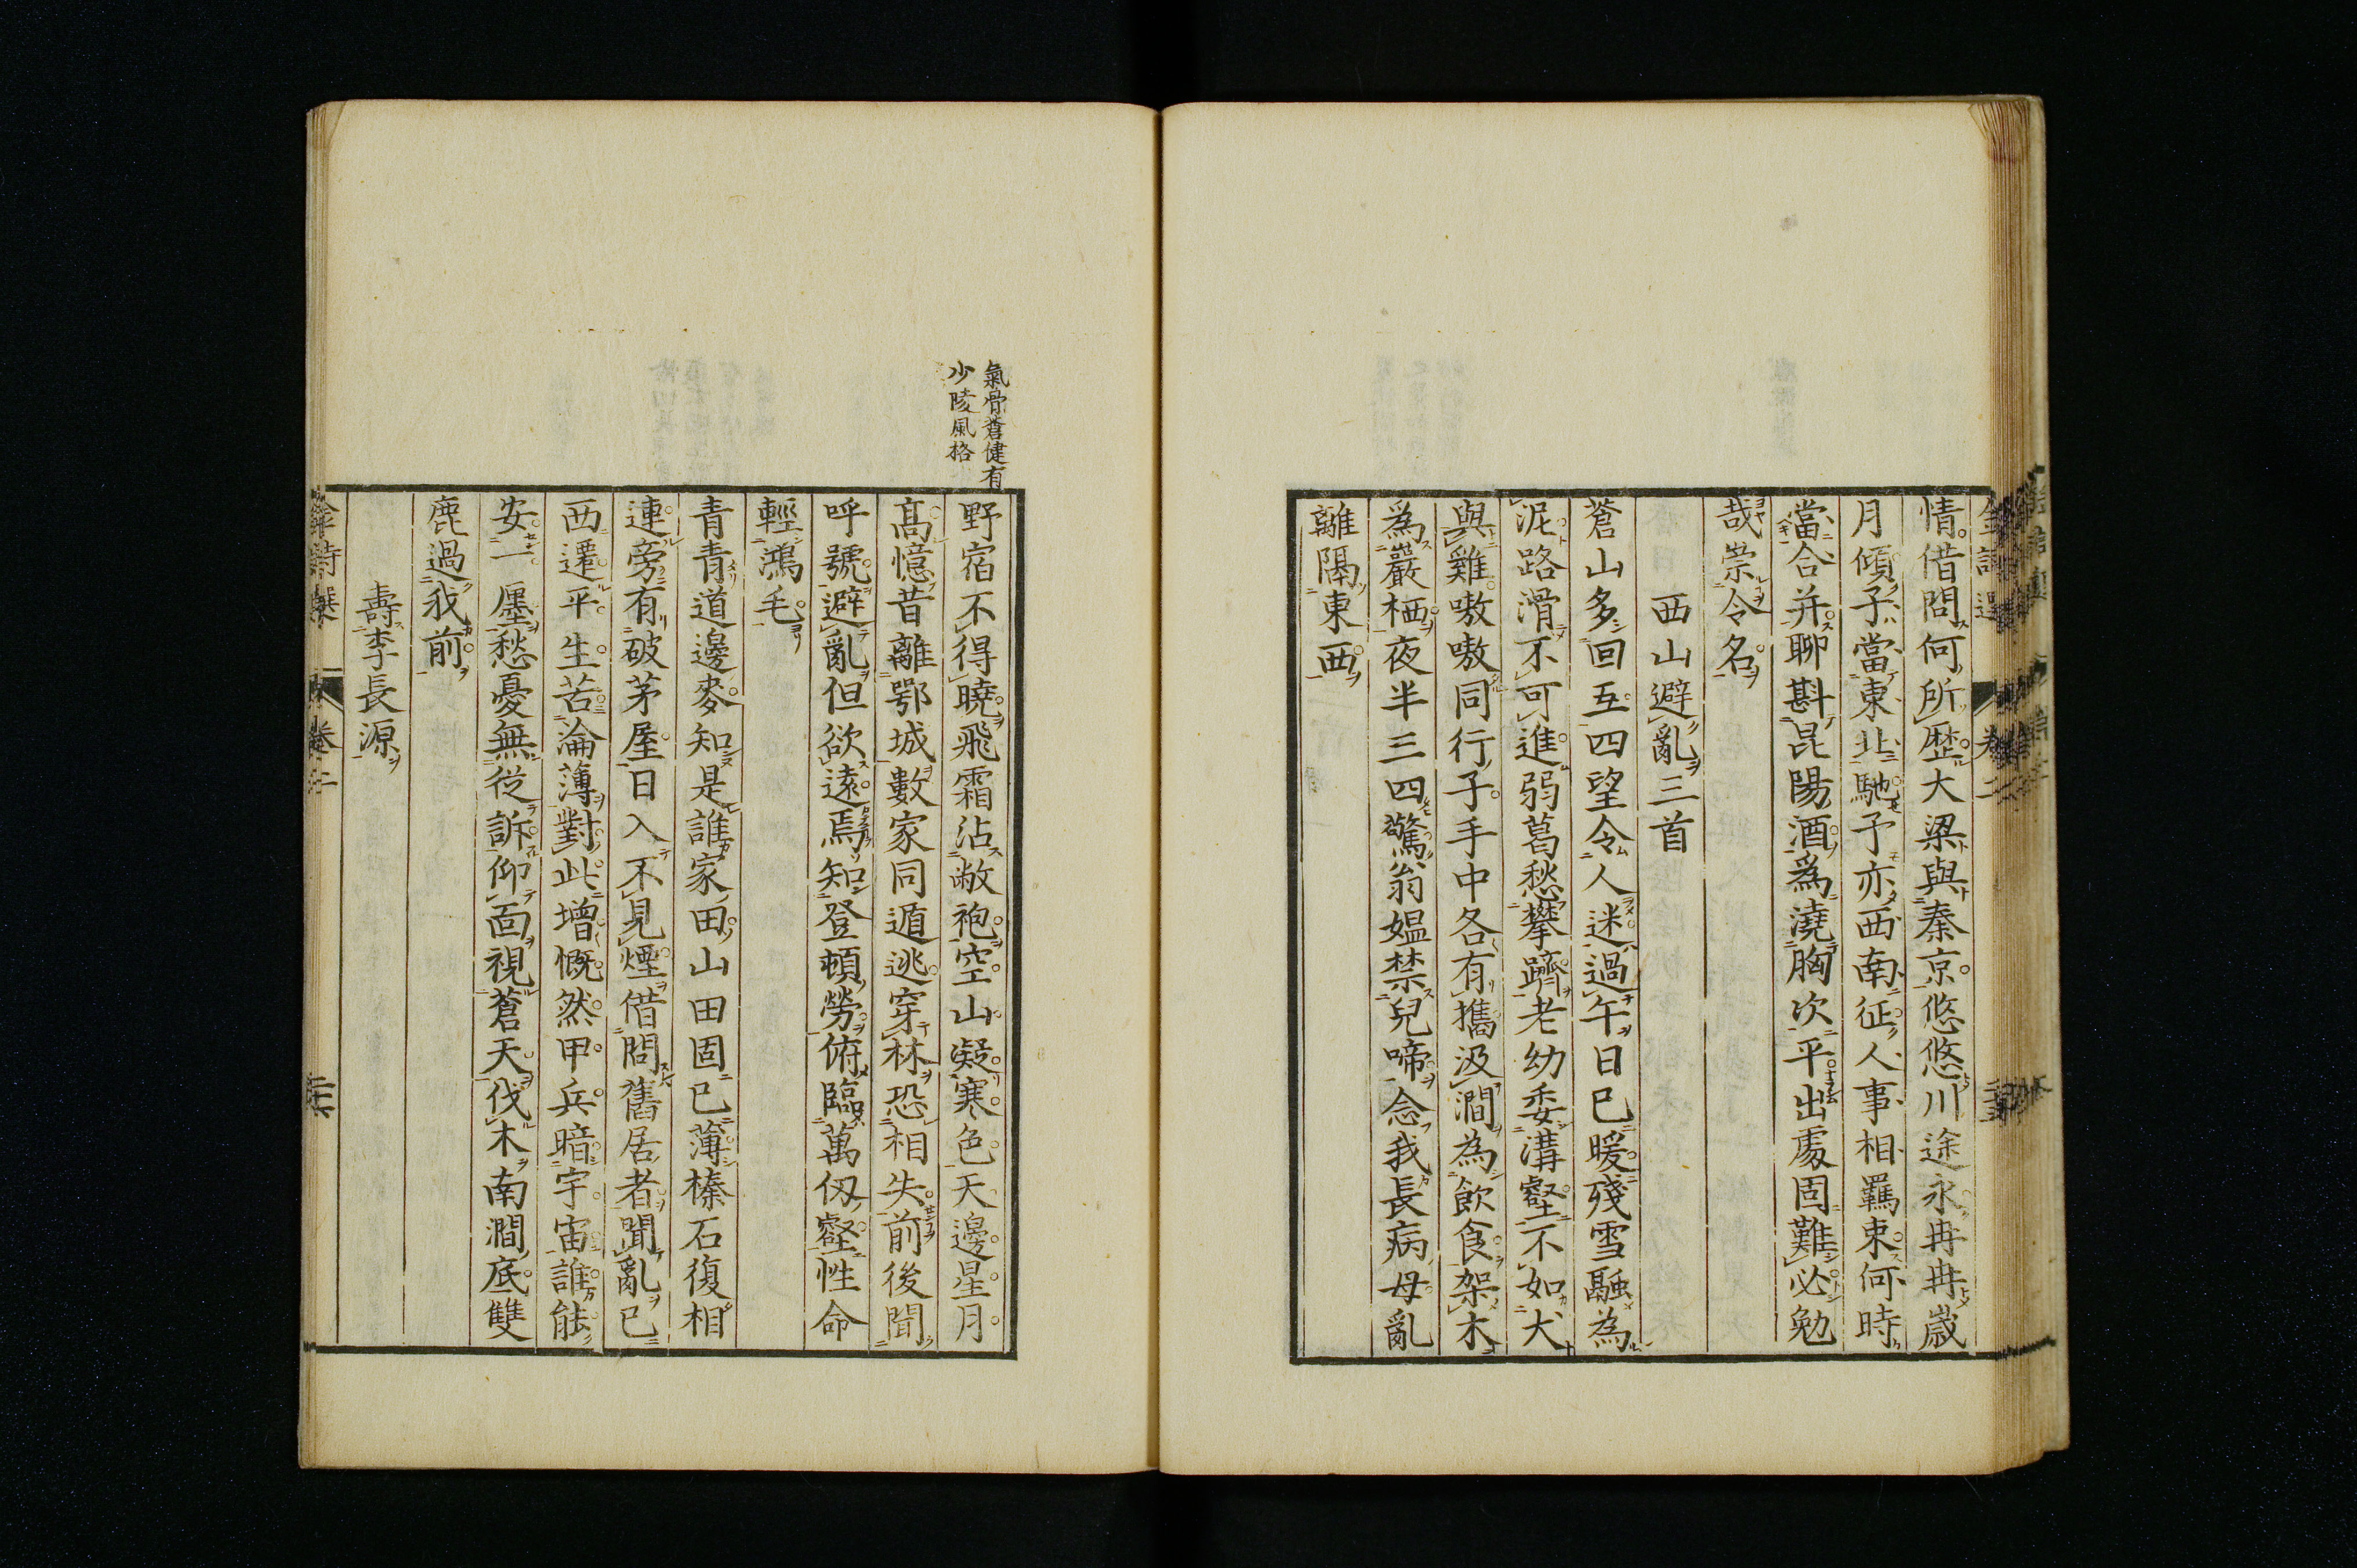 情借問何所歴大梁與秦京悠悠川途永冉冉歳
月傾子當東北馳予亦西南征人事相羈束何時
當合并聊斟昆陽酒爲澆胸次平出處固難必勉
哉崇令名
西山避亂三首
蒼山多回互四望令人迷過午日已暖殘雪融為
泥路滑不可進弱葛愁攀躋老幼委溝壑不如犬
與雞嗷嗷同行子手中各有攜汲澗為飲食架木
爲巖栖夜半三四驚翁媼禁兒啼念我長病母亂
離隔東西
氣骨蒼健有
少陵風格
野宿不得曉飛霜沾敝袍空山凝寒色天邊星月
高憶昔離鄂城數家同遁逃穿林恐相失前後聞
呼號避亂但欲遠焉知登頓勞俯臨萬仭壑性命
輕鴻毛
青青道邊麥知是誰家田山田固已薄榛石復相
連旁有破茅屋日入不見煙借問舊居者聞亂已
西遷平生苦淪薄對此增慨然甲兵暗宇宙誰能
安一廛愁憂無從訴仰面視蒼天伐木南澗底雙
鹿過我前
壽李長源